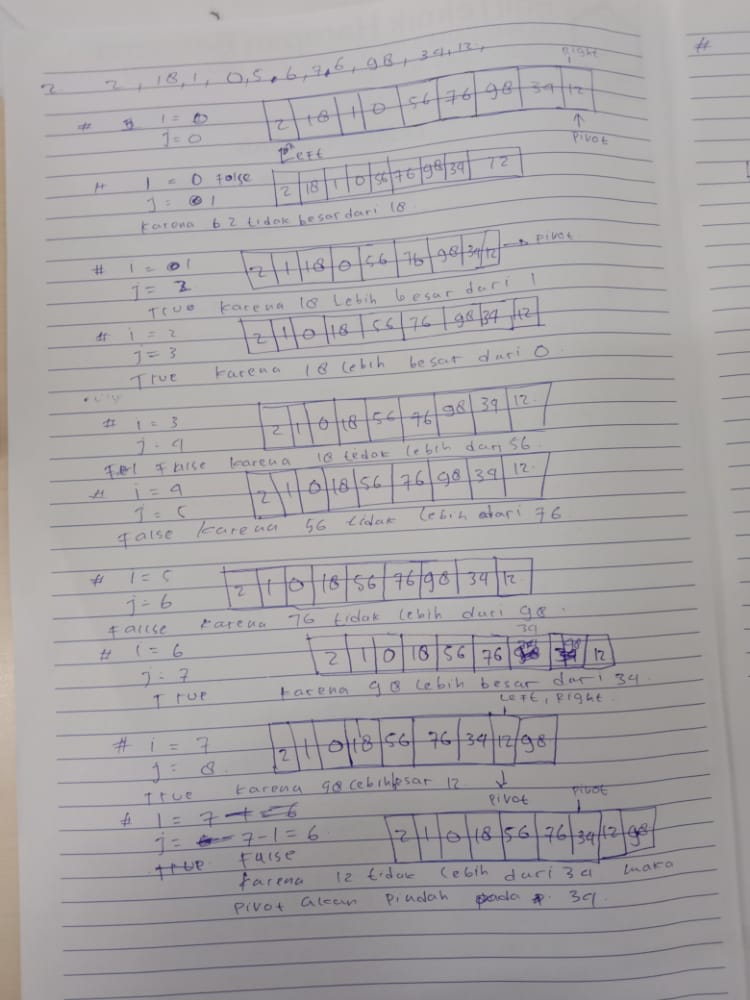 2. 2, 18, 1, 0, 5, 6, 7, 6, 98, 34, 12,
Right
# i = 0 2 18 1 0 56 76 98 34 12
j = 0
Left Pivot
# i = 0 false 2 18 1 0 56 76 98 34 12
j = 1
karena 2 tidak besar dari 18.
# i = 1 2 1 18 0 56 76 98 34 12 → pivot
j = 2
True karena 18 lebih besar dari 1
# i = 2 2 1 0 18 56 76 98 34 12
j = 3
True karena 18 lebih besar dari 0.
# i = 3 2 1 0 18 56 76 98 34 12
j = 4
False karena 18 tidak lebih dari 56
# i = 4 2 1 0 18 56 76 98 34 12
j = 5
false karena 56 tidak lebih dari 76
# i = 5 2 1 0 18 56 76 98 34 12
j = 6
false karena 76 tidak lebih dari 98.
# i = 6 2 1 0 18 56 76 34 98 12
j = 7
True karena 98 lebih besar dari 34.
Left, Right
# i = 7 2 1 0 18 56 76 34 12 98
j = 8
True karena 98 lebih besar 12
pivot
pivot
# i = 7 - 1 = 6
j = 7 - 1 = 6 2 1 0 18 56 76 34 12 98
True False
karena 12 tidak lebih dari 34 maka
pivot akan pindah pada 34.
#